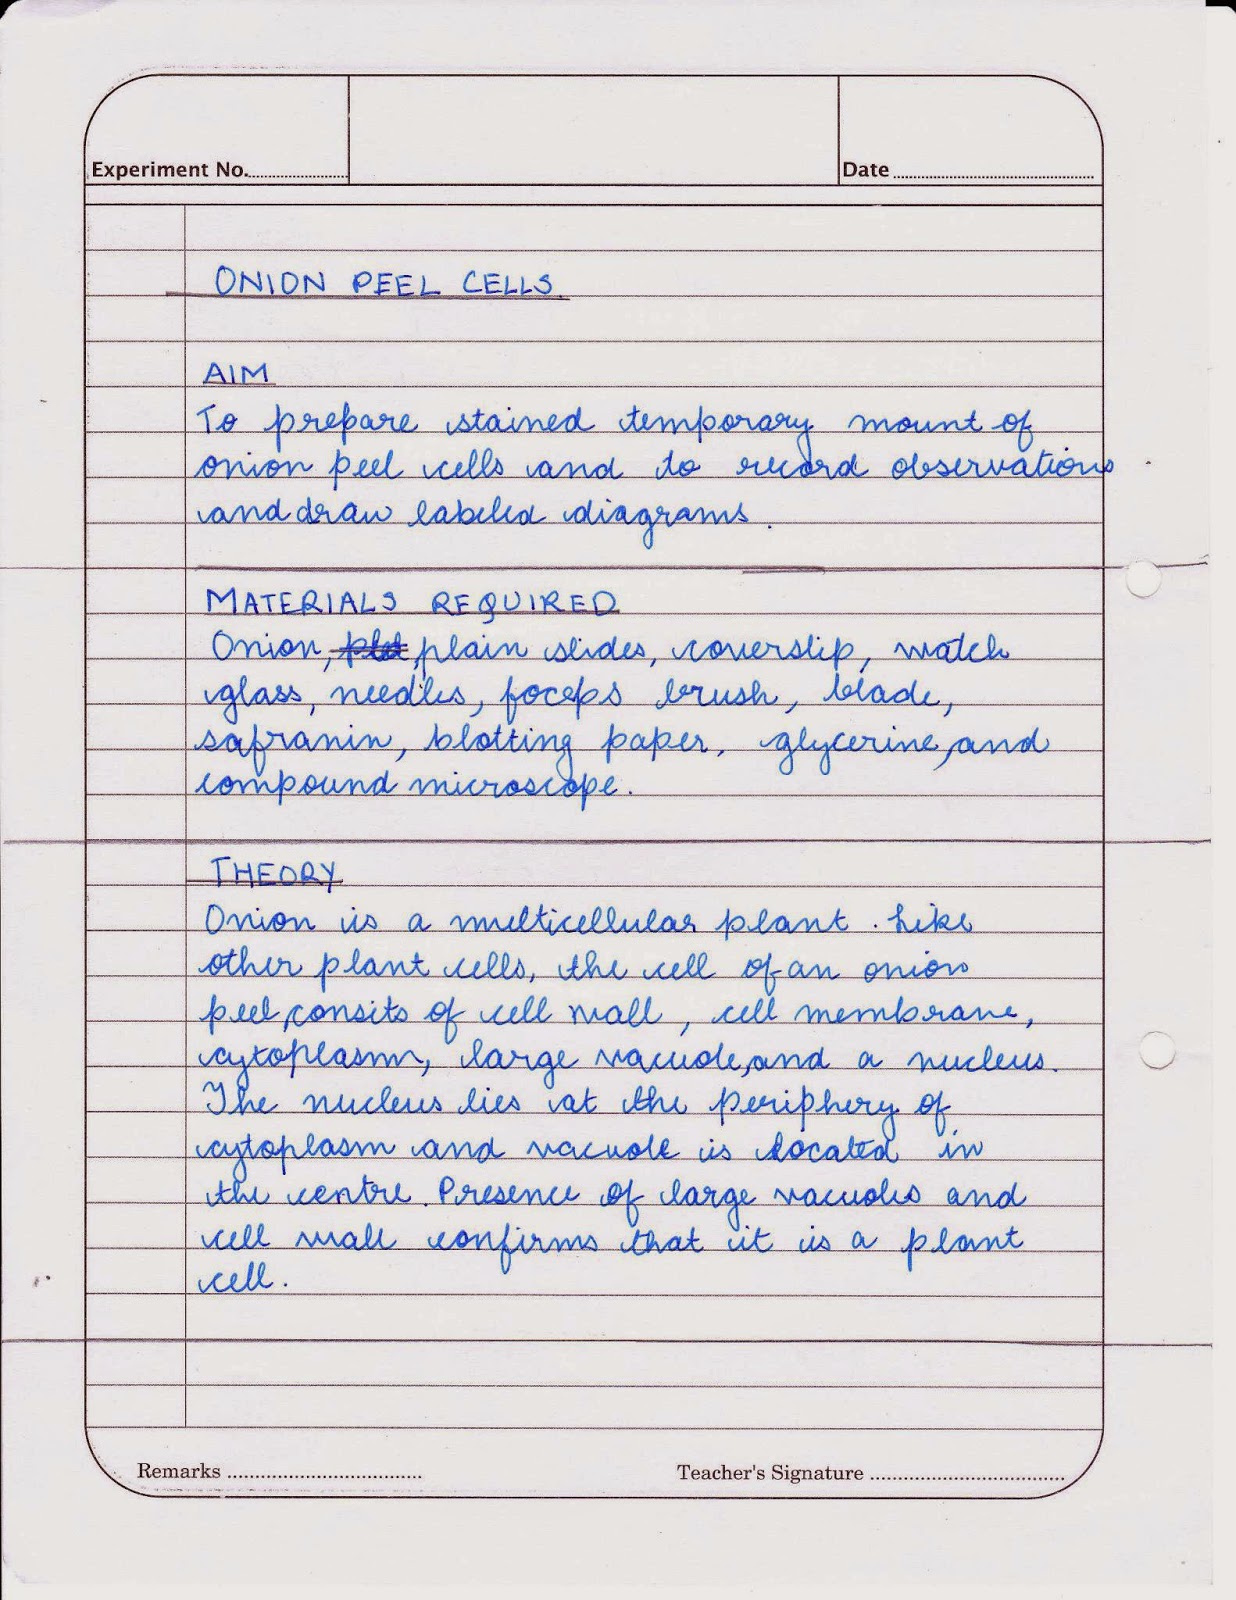 Experiment No.
Date
ONION PEEL CELLS.
AIM
To prepare stained temporary mount of
onion peel cells and to record observations
and draw labeled diagrams.
MATERIALS REQUIRED
Onion, plain slides, coverslip, watch
glass, needles, foceps brush, blade,
safranin, blotting paper, glycerine, and
compound microscope.
THEORY
Onion is a multicellular plant. Like
other plant cells, the cell of an onion
peel, consits of cell wall, cell membrane,
cytoplasm, large vacuole, and a nucleus.
The nucleus lies at the periphery of
cytoplasm and vacuole is located in
the centre. Presence of large vacuoles and
cell wall confirms that it is a plant
cell.
Remarks
Teacher's Signature